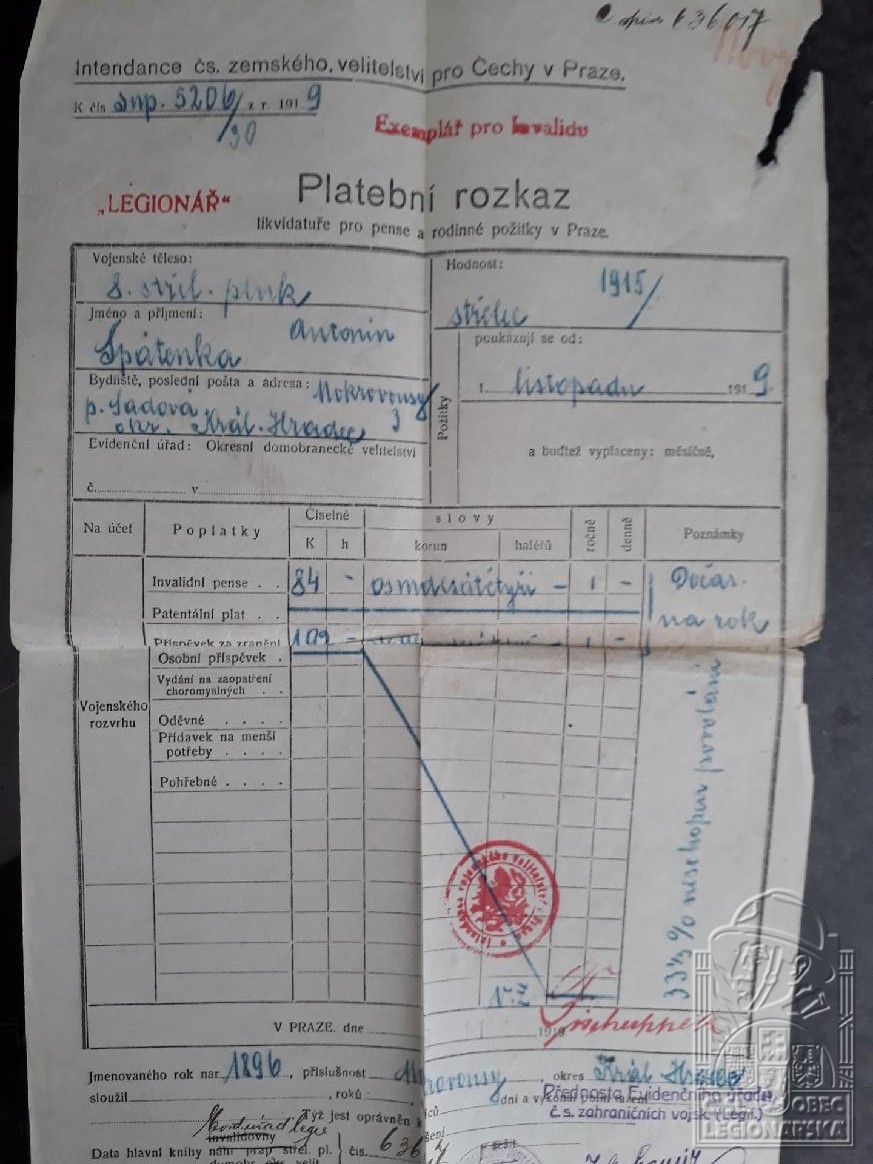 636017
Intendance čs. zemského velitelství pro Čechy v Praze.
K čís. 5206/ z r. 1919
/30
Exemplář pro Invalidu
„LEGIONÁŘ“
Platební rozkaz
likvidatuře pro pense a rodinné požitky v Praze.
Vojenské těleso:
8. střel. pluk
Hodnost:
1915/
střelec
Jméno a příjmení:
Antonín
Špátenka
poukazují se od:
1. listopadu 1919
Bydliště, poslední pošta a adresa: Mokrovousy
p. Sadová 3
okr. Král. Hradec
Požitky
Evidenční úřad: Okresní domobranecké velitelství
a buďtež vyplaceny: měsíčně,
č. v
Na účet
Poplatky
Číselné
K h
slovy
korun haléřů
ročně
denně
Poznámky
Invalidní pense . . 84 - osmdesátčtyři - 1 -
Dočas.
na rok
Patentální plat . .
Příspěvek za zranění 192 -
Osobní příspěvek .
Vydání na zaopatření
choromyslných . .
Vojenského
rozvrhu
Oděvné . . . .
Přídavek na menší
potřeby . . . .
Pohřebné . . . .
33⅓ % neschopen povolání
V PRAZE, dne 191
Jmenovaného rok nar. 1896, příslušnost Mokrovousy, okres Král. Hradec
sloužil , roků
Předposta Evidenčního úřadu
č.s. zahraničních vojsk (Legií.)
Týž jest oprávněn k
invalidovny
Data hlavní knihy čís. 636
OBEC
LEGIONÁŘSKÁ